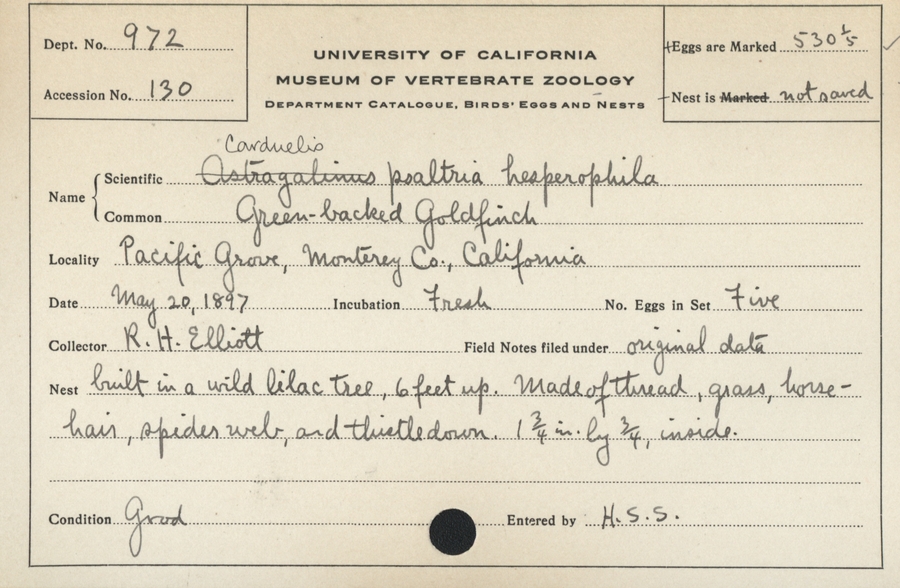 Dept. No. 972
Accession No. 130
UNIVERSITY OF CALIFORNIA
MUSEUM OF VERTEBRATE ZOOLOGY
DEPARTMENT CATALOGUE, BIRDS' EGGS AND NESTS
Eggs are Marked 530 1/5 ✓
Nest is Marked not saved
Carduelis
Name { Scientific Astragalinus psaltria hesperophila
Common Green-backed Goldfinch
Locality Pacific Grove, Monterey Co., California
Date May 20, 1897 Incubation Fresh No. Eggs in Set Five
Collector R. H. Elliott Field Notes filed under original data
Nest built in a wild lilac tree, 6 feet up. Made of thread, grass, horse-
hair, spider web, and thistledown. 1 3/4 in. by 3/4, inside.
Condition Good Entered by H.S.S.